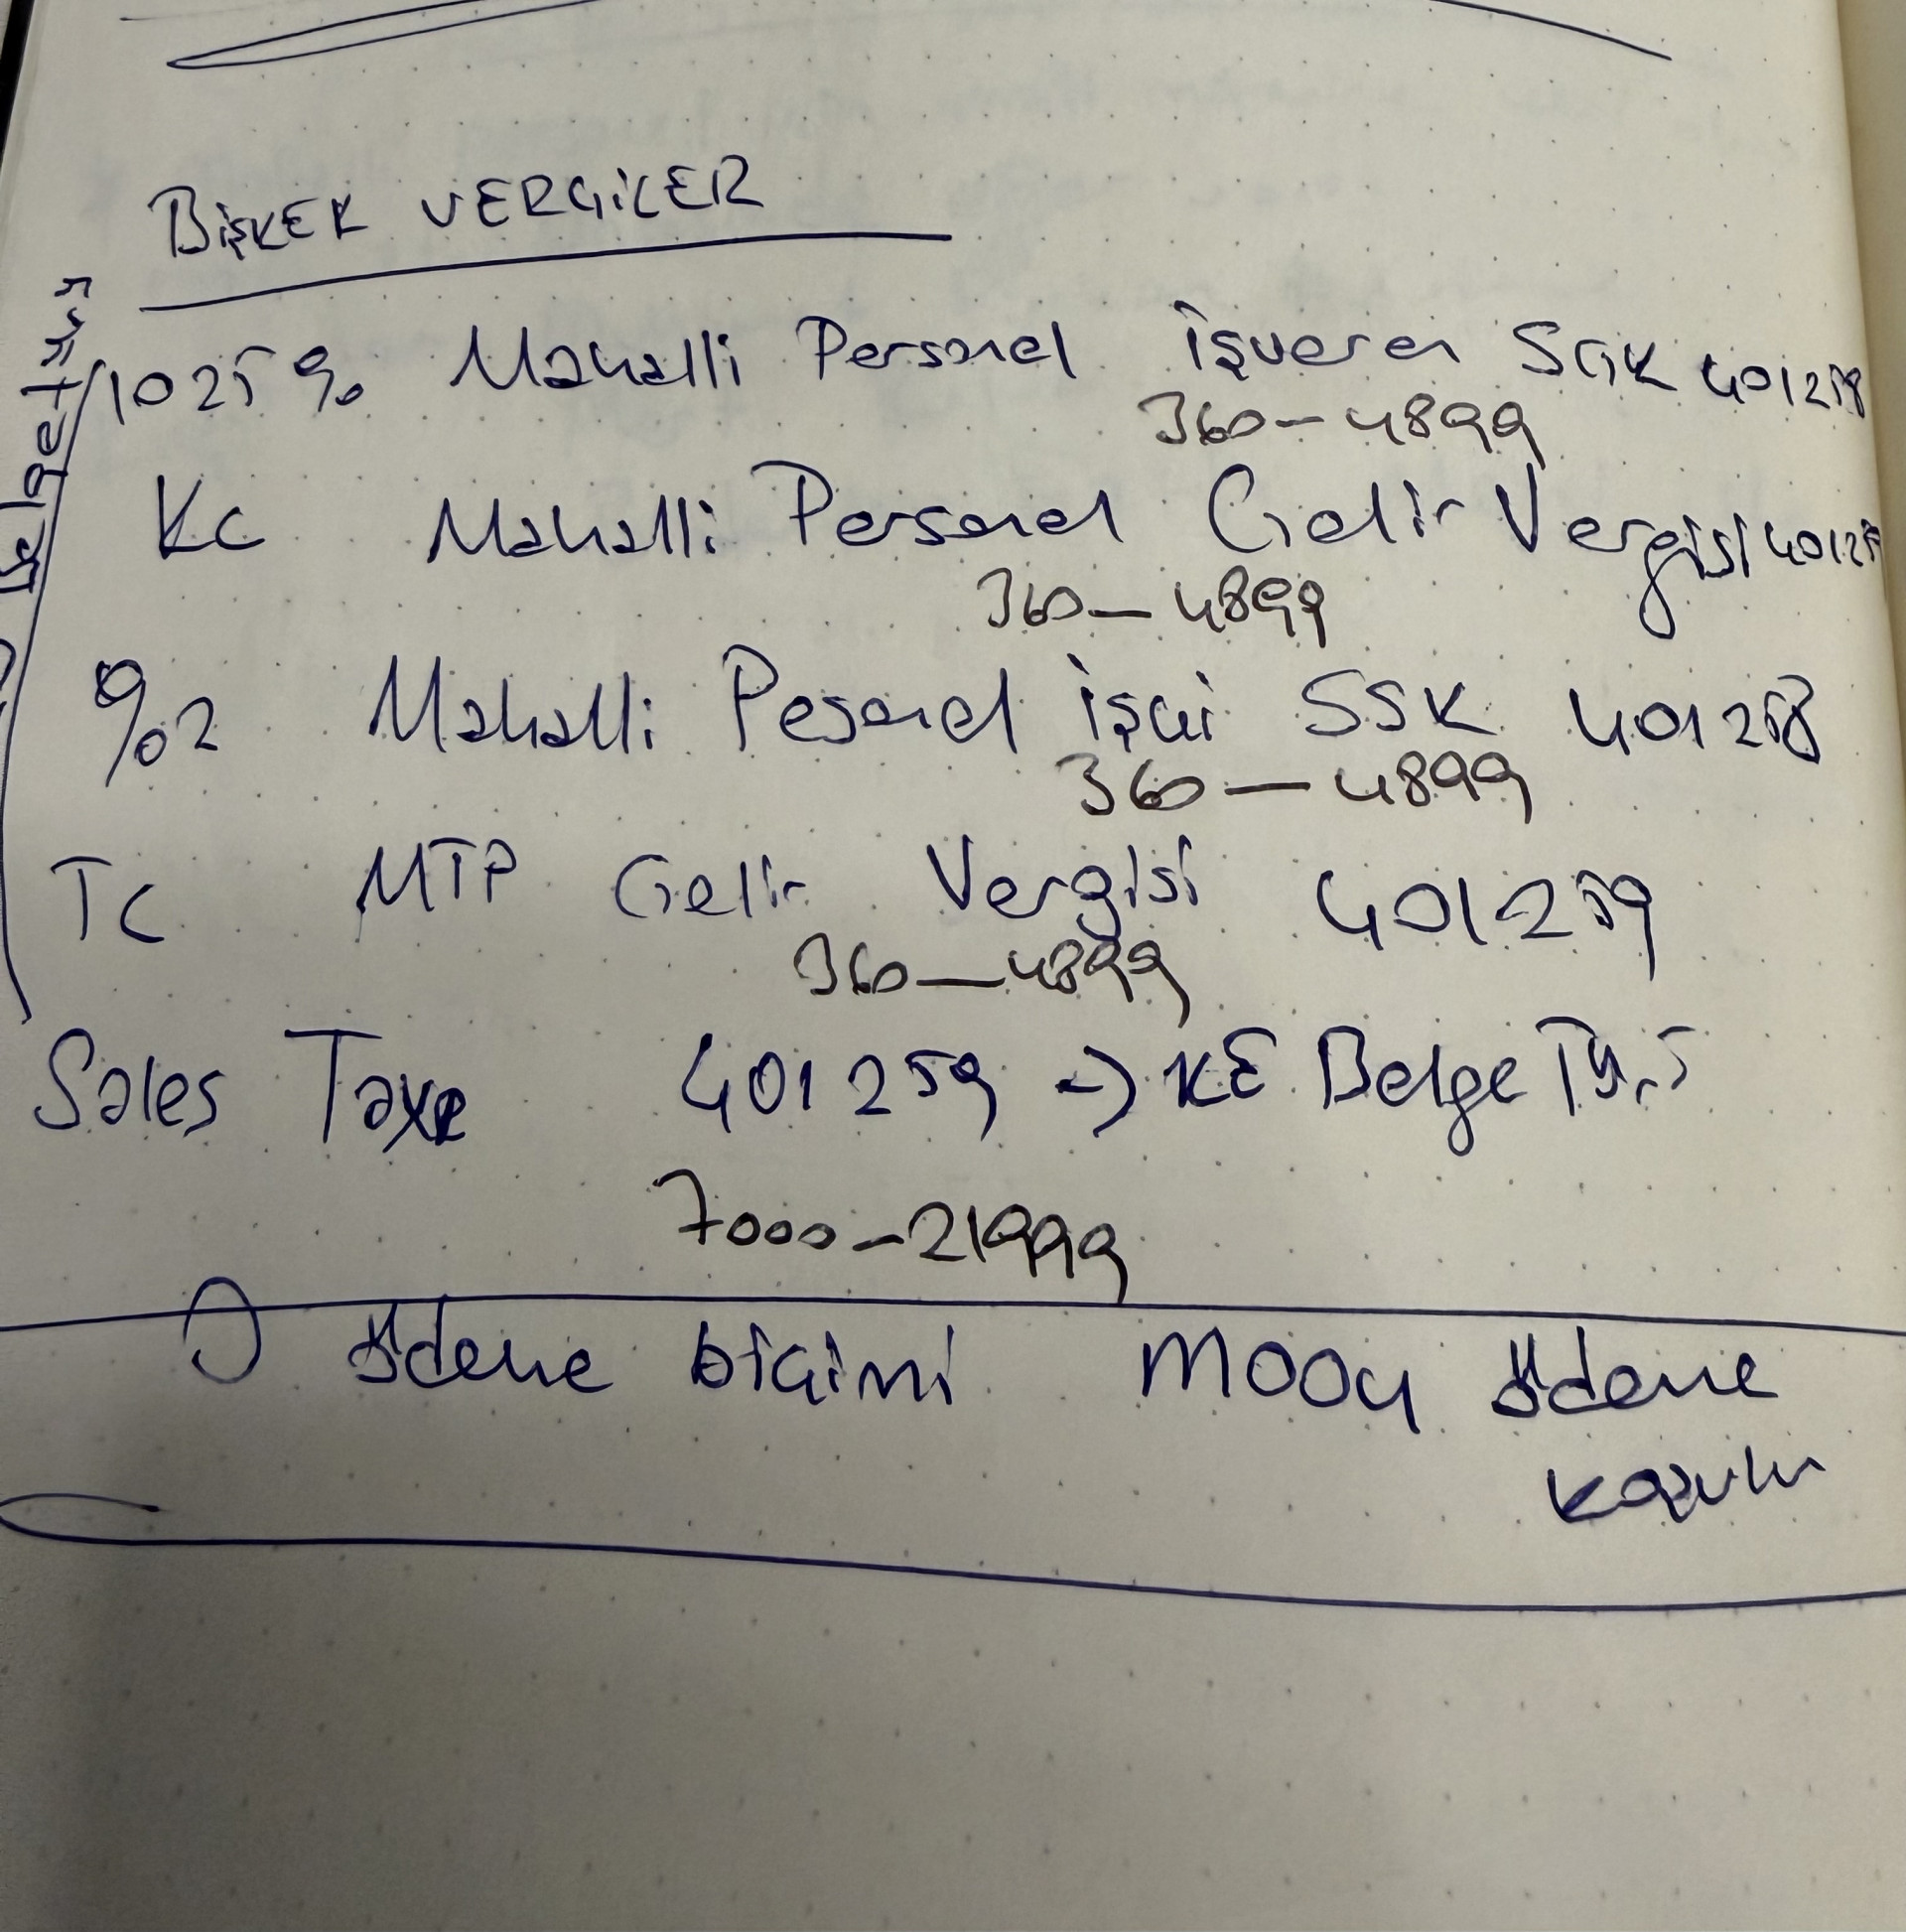 BİŞKEK VERGİLER
1025 % Mahalli Personel İşveren SGK 401258
360-4899
KC Mahalli Personel Gelir Vergisi 401259
360-4899
%2 Mahalli Pesonel işçi SSK 401258
360-4899
TC MTP Gelir Vergisi 401259
360-4899
Sales Taxe 401259 → KE Belge Türü
7000-21999
J ödeme biçimi M004 ödeme
koşulu
Belge türü